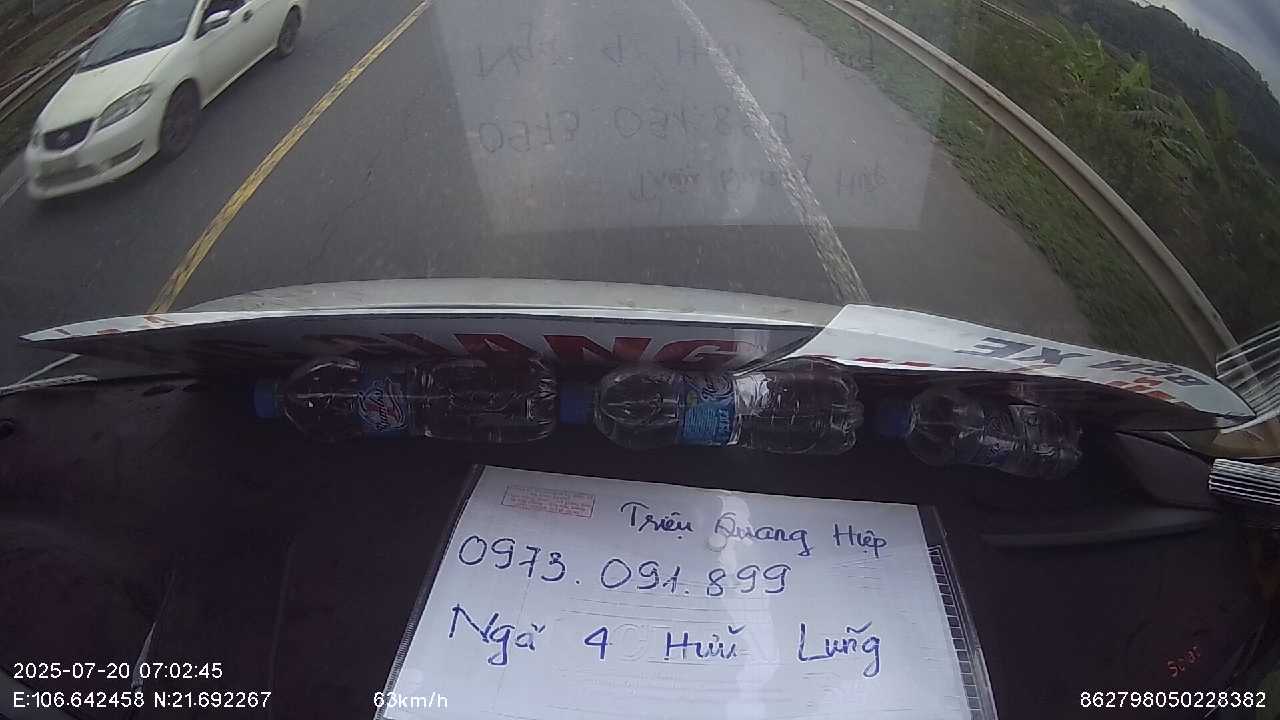 GIANG
BẾN XE
Triệu Quang Hiệp
0973.091.899
Ngã 4 Hữu Lũng
2025-07-20 07:02:45
E:106.642458 N:21692267
63km/h
862798050228382